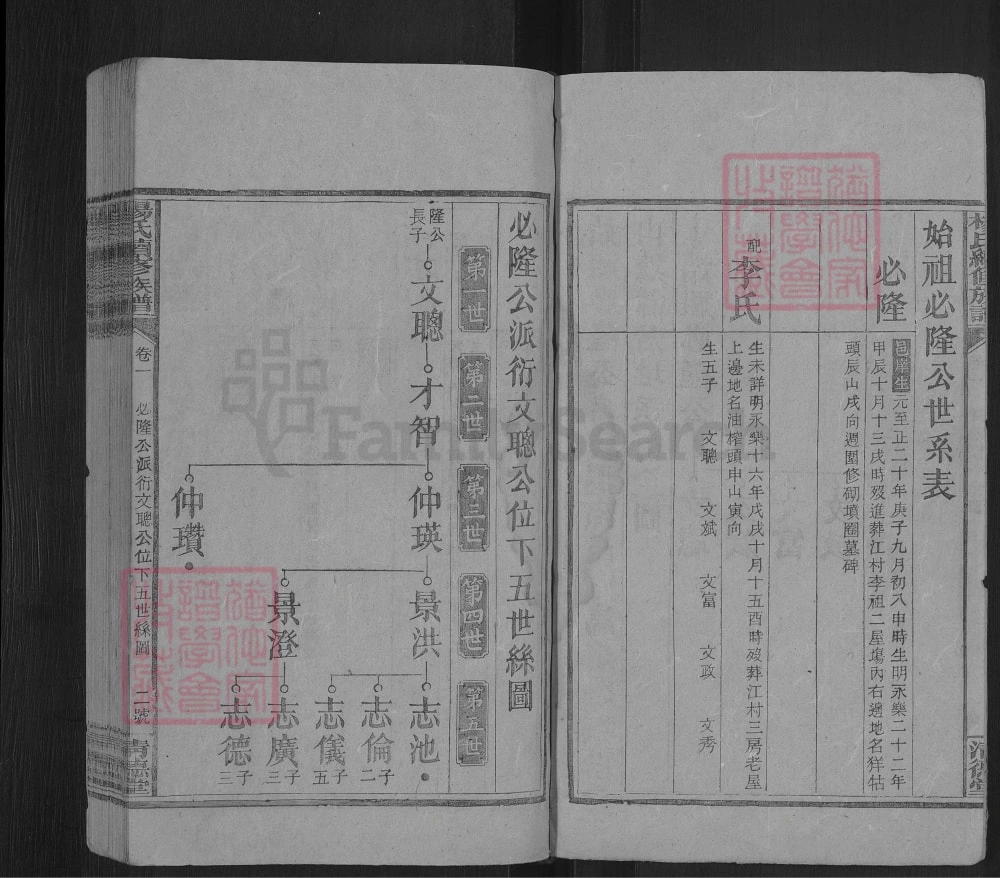 始祖必隆公世系表
必隆
邑庠生元至正二十年庚子九月初八申時生明永樂二十二年
甲辰十月十三戌時歿進葬江村李祖二屋塲內右邊地名牂牯
頭辰山戌向週圍修砌墳圈墓碑
配李氏
生未詳明永樂十六年戊戌十月十五酉時歿葬江村三房老屋
上邊地名油榨頭申山寅向
生五子 文聰 文斌 文富 文政 文秀
必隆公派衍文聰公位下五世絲圖
第一世 第二世 第三世 第四世 第五世
隆公長子 文聰 才智 仲瑛 景洪 志池
志倫 二子
志儀 五子
景澄 志廣 三子
志德 三子
仲瓚
楊氏續修族譜 卷一 必隆公派衍文聰公位下五世絲圖 二號 清德堂
FamilySearch